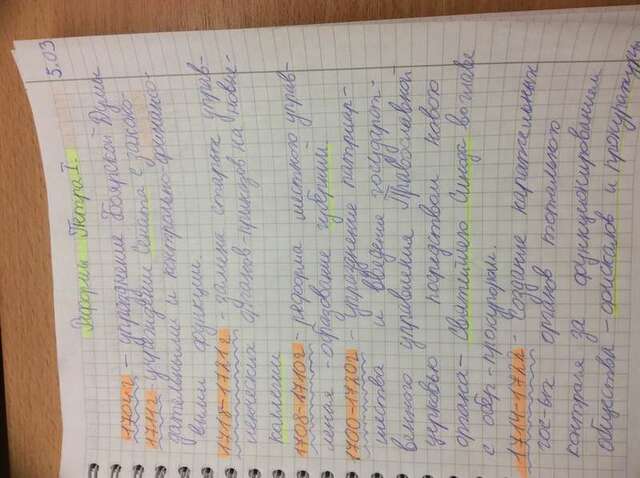 5.03
Реформы Петра I.
1704г - упразднение Боярской Думы
1711г - учреждение Сената с законо-
дательными и контрольно-финансо-
выми функции.
1718-1721г - замена старых управ-
органов-приказов на новые-
коллегии
1708-1710г - реформа местного управ-
ления - образование губерний.
1700-1720г - упразднение патриар-
шества и введение государст-
венного управления Православной
церковью посредством нового
органа - Святейшего Синода во главе
с обер-прокурором.
1714-1722 - Создание карательных
гос-ых органов тотального
контроля за функционированием
общества - фискалов и прокуратуры